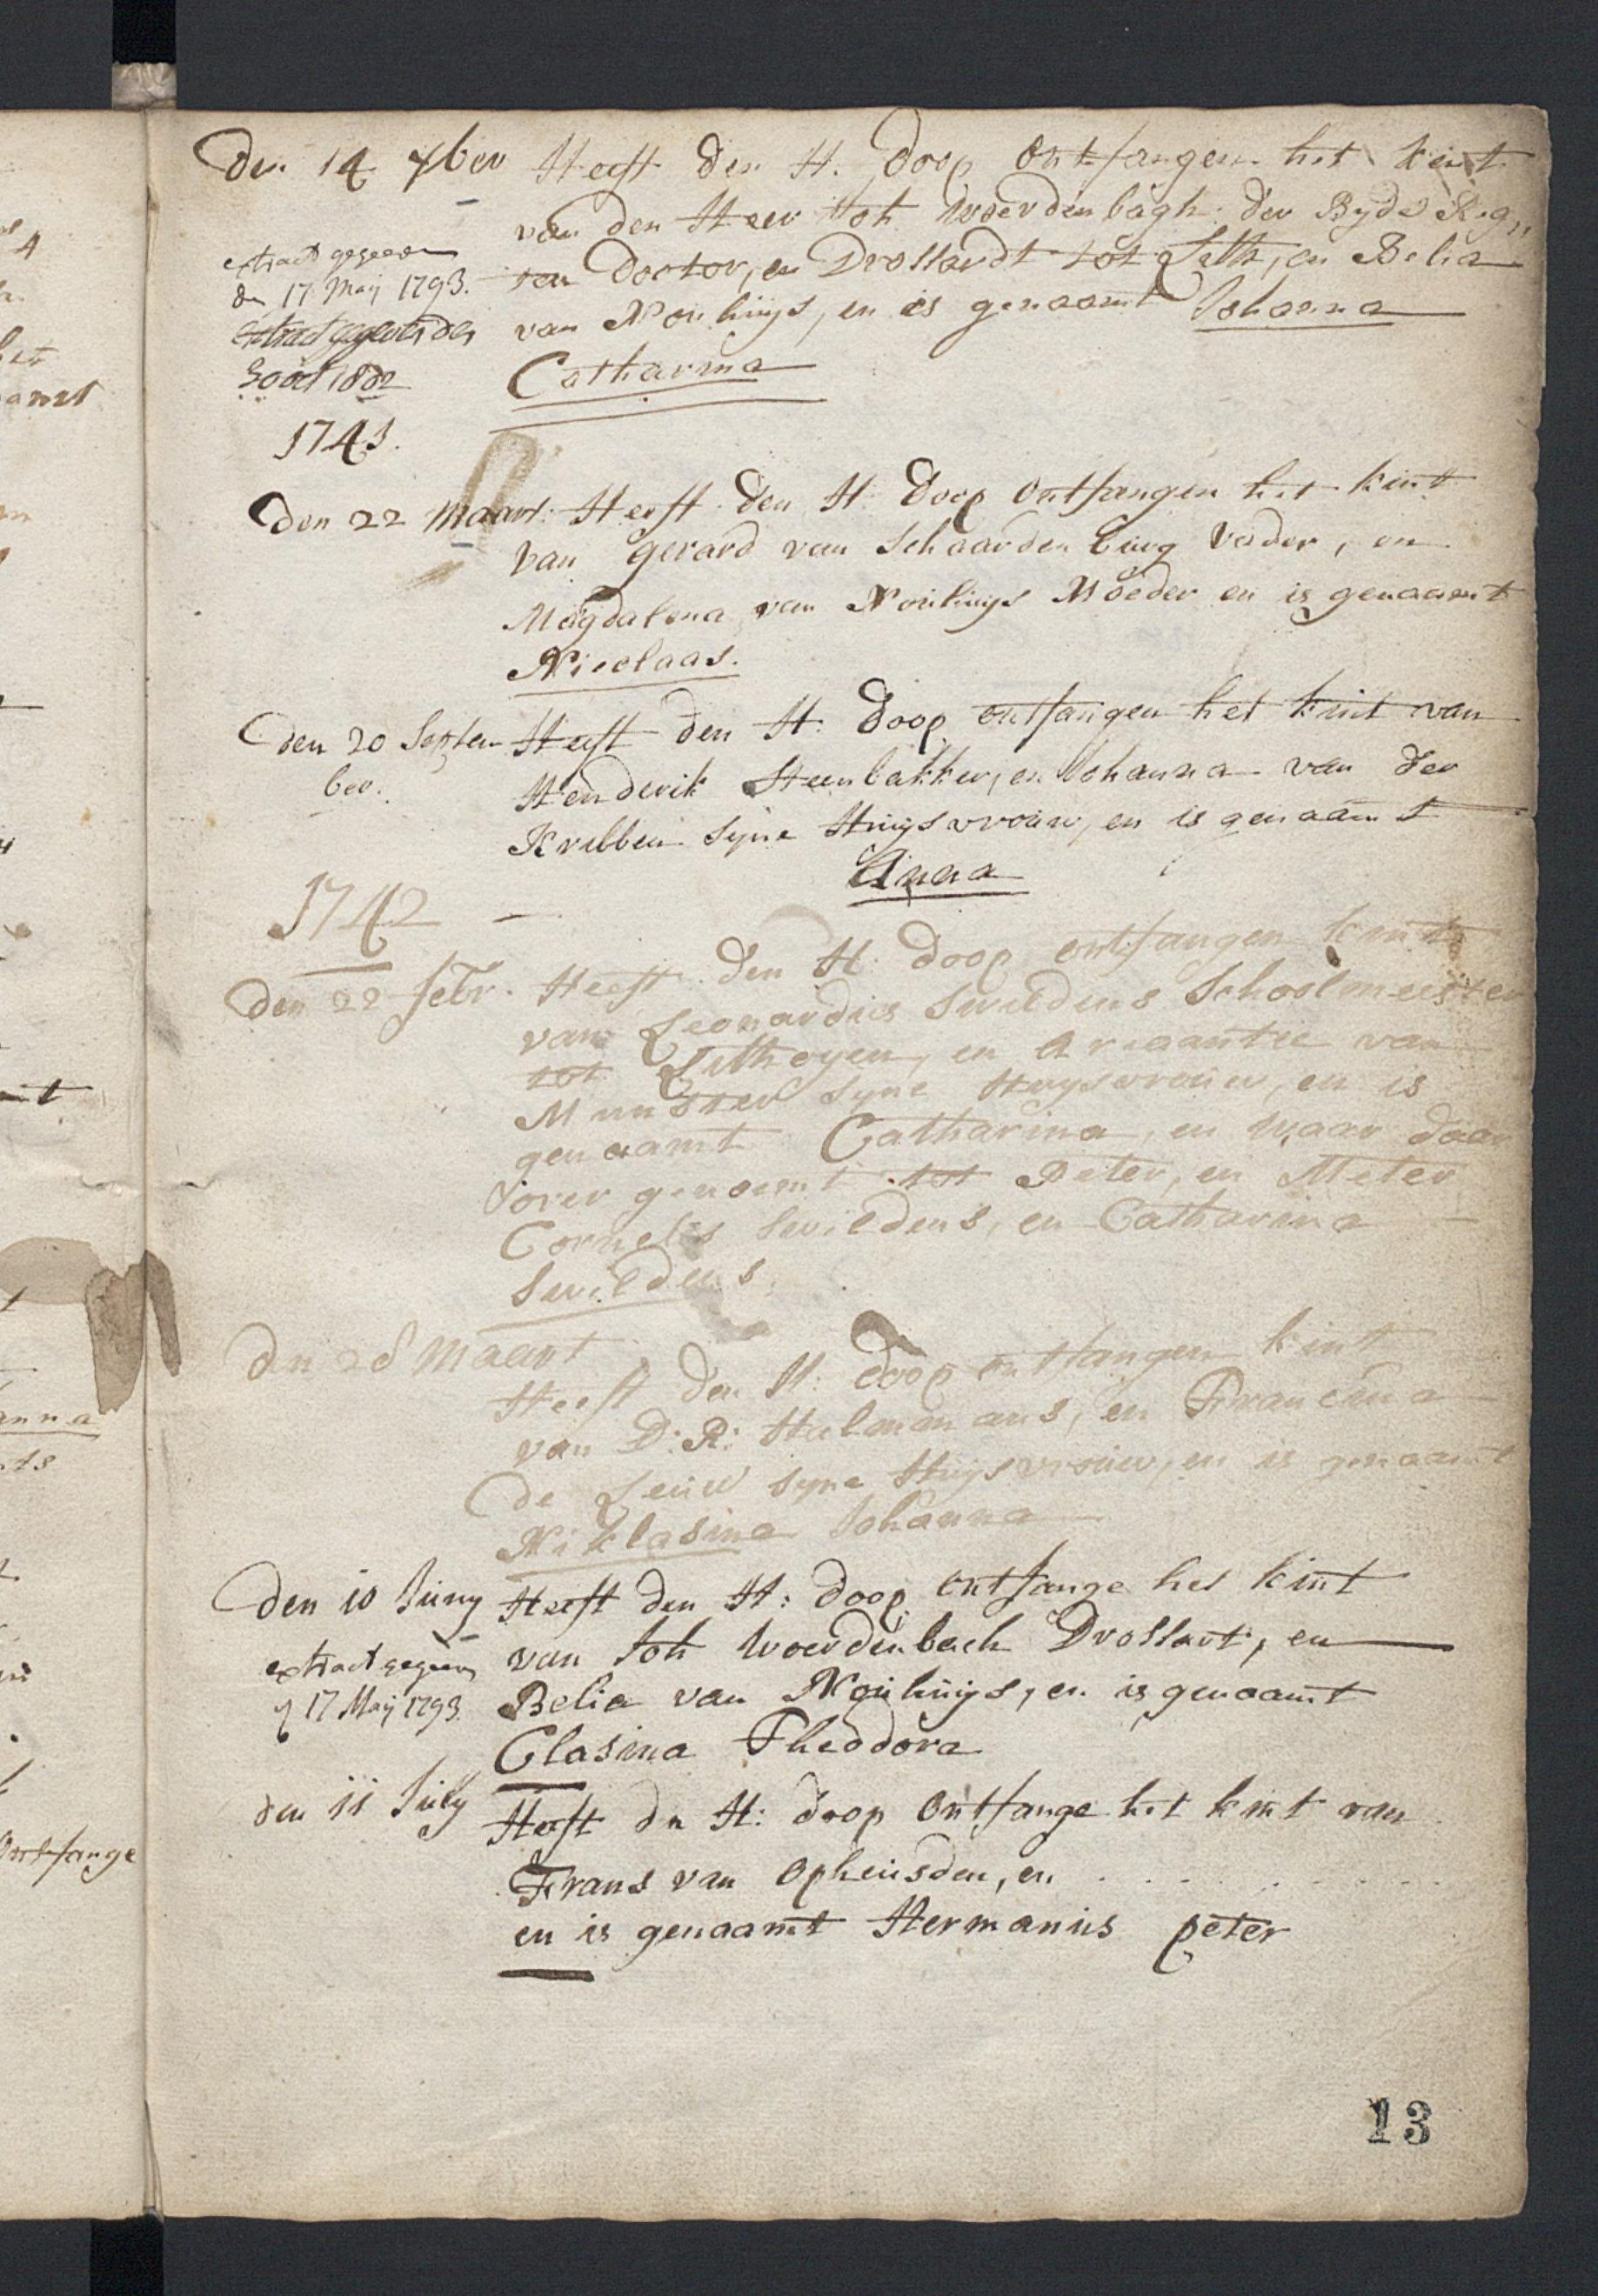 Den 14 7ber Heeft den H. Doop ontfangen het kint
van den Heer Joh Woerdenbagh. der Byde Reg,,
ten Doctor, en Drossardt tot Lith, en Belia
van Nouhuys, en is genaamt Johanna
Catharina
extract gegeeven
den 17 Maij 1793.
extract gegeven den
30 oct 1802
1741.
Den 22 Maart. Heeft den H. Doop ontfangen het kint
van Gerard van Schaardenburg Vader, en
Magdalena van Nouhuys Moeder en is genaamt
Nicolaas.
Den 20 Septem Heeft den H. Doop ontfangen het kint van
ber. Henderik Steenbakker, en Johanna van der
Kribben Syne Huysvrouw, en is genaamt
Anna
1742
Den 22 febr. Heeft den H. Doop ontfangen kint
van Leonardus Swildens Schoolmeester
tot Lithoyen, en Ariaantie van
Munster Syne Huysvrouw, en is
genaamt Catharina, en waar daar
over genoemt tot Peter, en Meter
Cornelis Swildens, en Catharina
Swildens
Den 28 Maart
Heeft den H: Doop ontfangen kint
van D: R: Halmmans, en Francina
de Leeuw Syne Huysvrouw, en is genaamt
Niklasina Johanna
Den 10 Juny Heeft den H: Doop ontfange het kint
van Joh Woerdenbach Drossart, en
Belia van Nouhuys, en is genaamt
Clasina Theodora
extract gegeeven
d 17 Maij 1793.
den 11 July Heeft dn H: doop Ontfange het kint van
Frans van Opheusden, en . . . . . . . . .
en is genaamt Hermanus peter
13